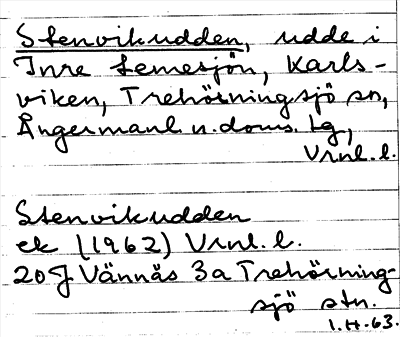 Stenvikudden, udde i
Inre Lemesjön, Karls-
viken, Trehörningsjö sn,
Ångermanl. n. doms. lg,
Vrnl. l.
Stenvikudden
ek (1962) Vrnl. l.
20J Vännäs 3a Trehörning-
sjö stn.
1.H.63.